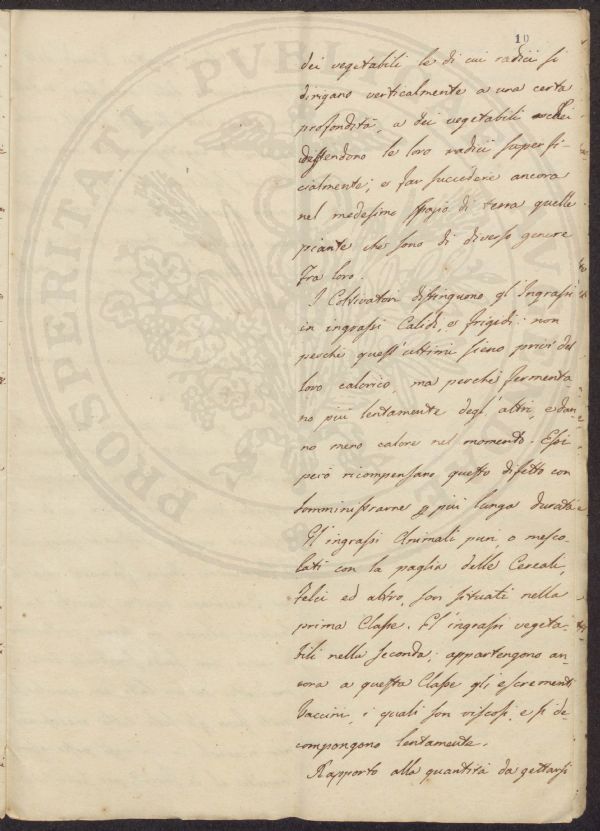 10
PROSPERITATI PVBLICAE
dei vegetabili le di cui radici si
dirigano verticalmente a una certa
profondità, a dei vegetabili che
distendono le loro radici superfi-
cialmente; e far succedere ancora
nel medesimo spazio di terra quelle
piante che sono di diverso genere
fra loro.
I Coltivatori distinguono gl'Ingrassi
in ingrassi Calidi, e frigidi: non
perchè quest'ultimi sieno privi del
loro calorico, ma perchè fermenta-
no più lentamente degl'altri, e dan-
no meno calore nel momento. Essi
però ricompensano questo difetto con
somministrarne p più lunga durata
Gl'ingrassi Animali puri, o mesco-
lati con la paglia delle Cereali,
Felci ed altro, son situati nella
prima Classe. Gl'ingrassi vegeta-
bili nella seconda; appartengono an-
cora a questa Classe gli escrementi
Vaccini, i quali son viscosi, e si de-
compongono lentamente.
Rapporto alla quantità da gettarsi